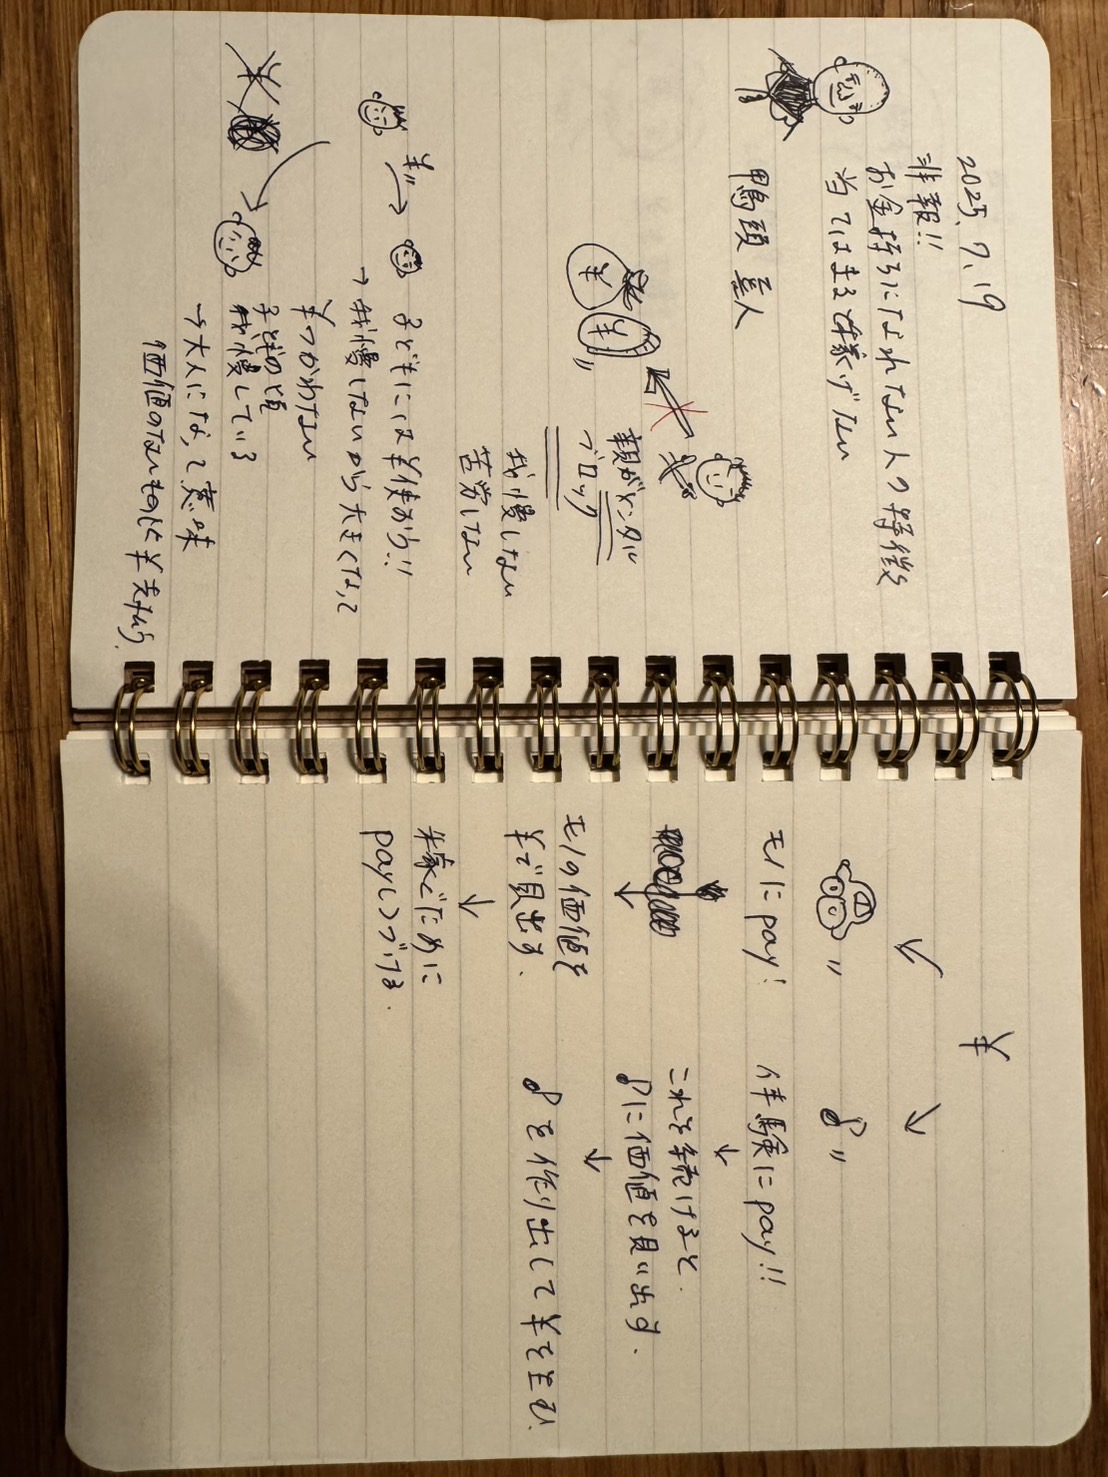 2025.7.19
悲報!!
お金持ちになれない人の特徴
当てはまると稼げない
鴨頭 嘉人
¥
¥
親がメンタル
ブロック
我慢しない
苦労しない
¥
子どもには¥使おう!!
→我慢しないから大きくなって
¥つかわない
¥
子どもの頃
我慢している
→大人になって意味
価値のないものに¥支払う.
¥
モノにpay!
モノの価値を
¥で見出す.
稼ぐために
payしつづける.
体験にpay!!
これを続けると.
に価値を見い出す.
を作り出して¥を生む.